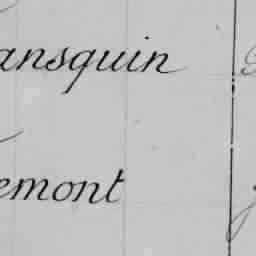 ansquin
emont